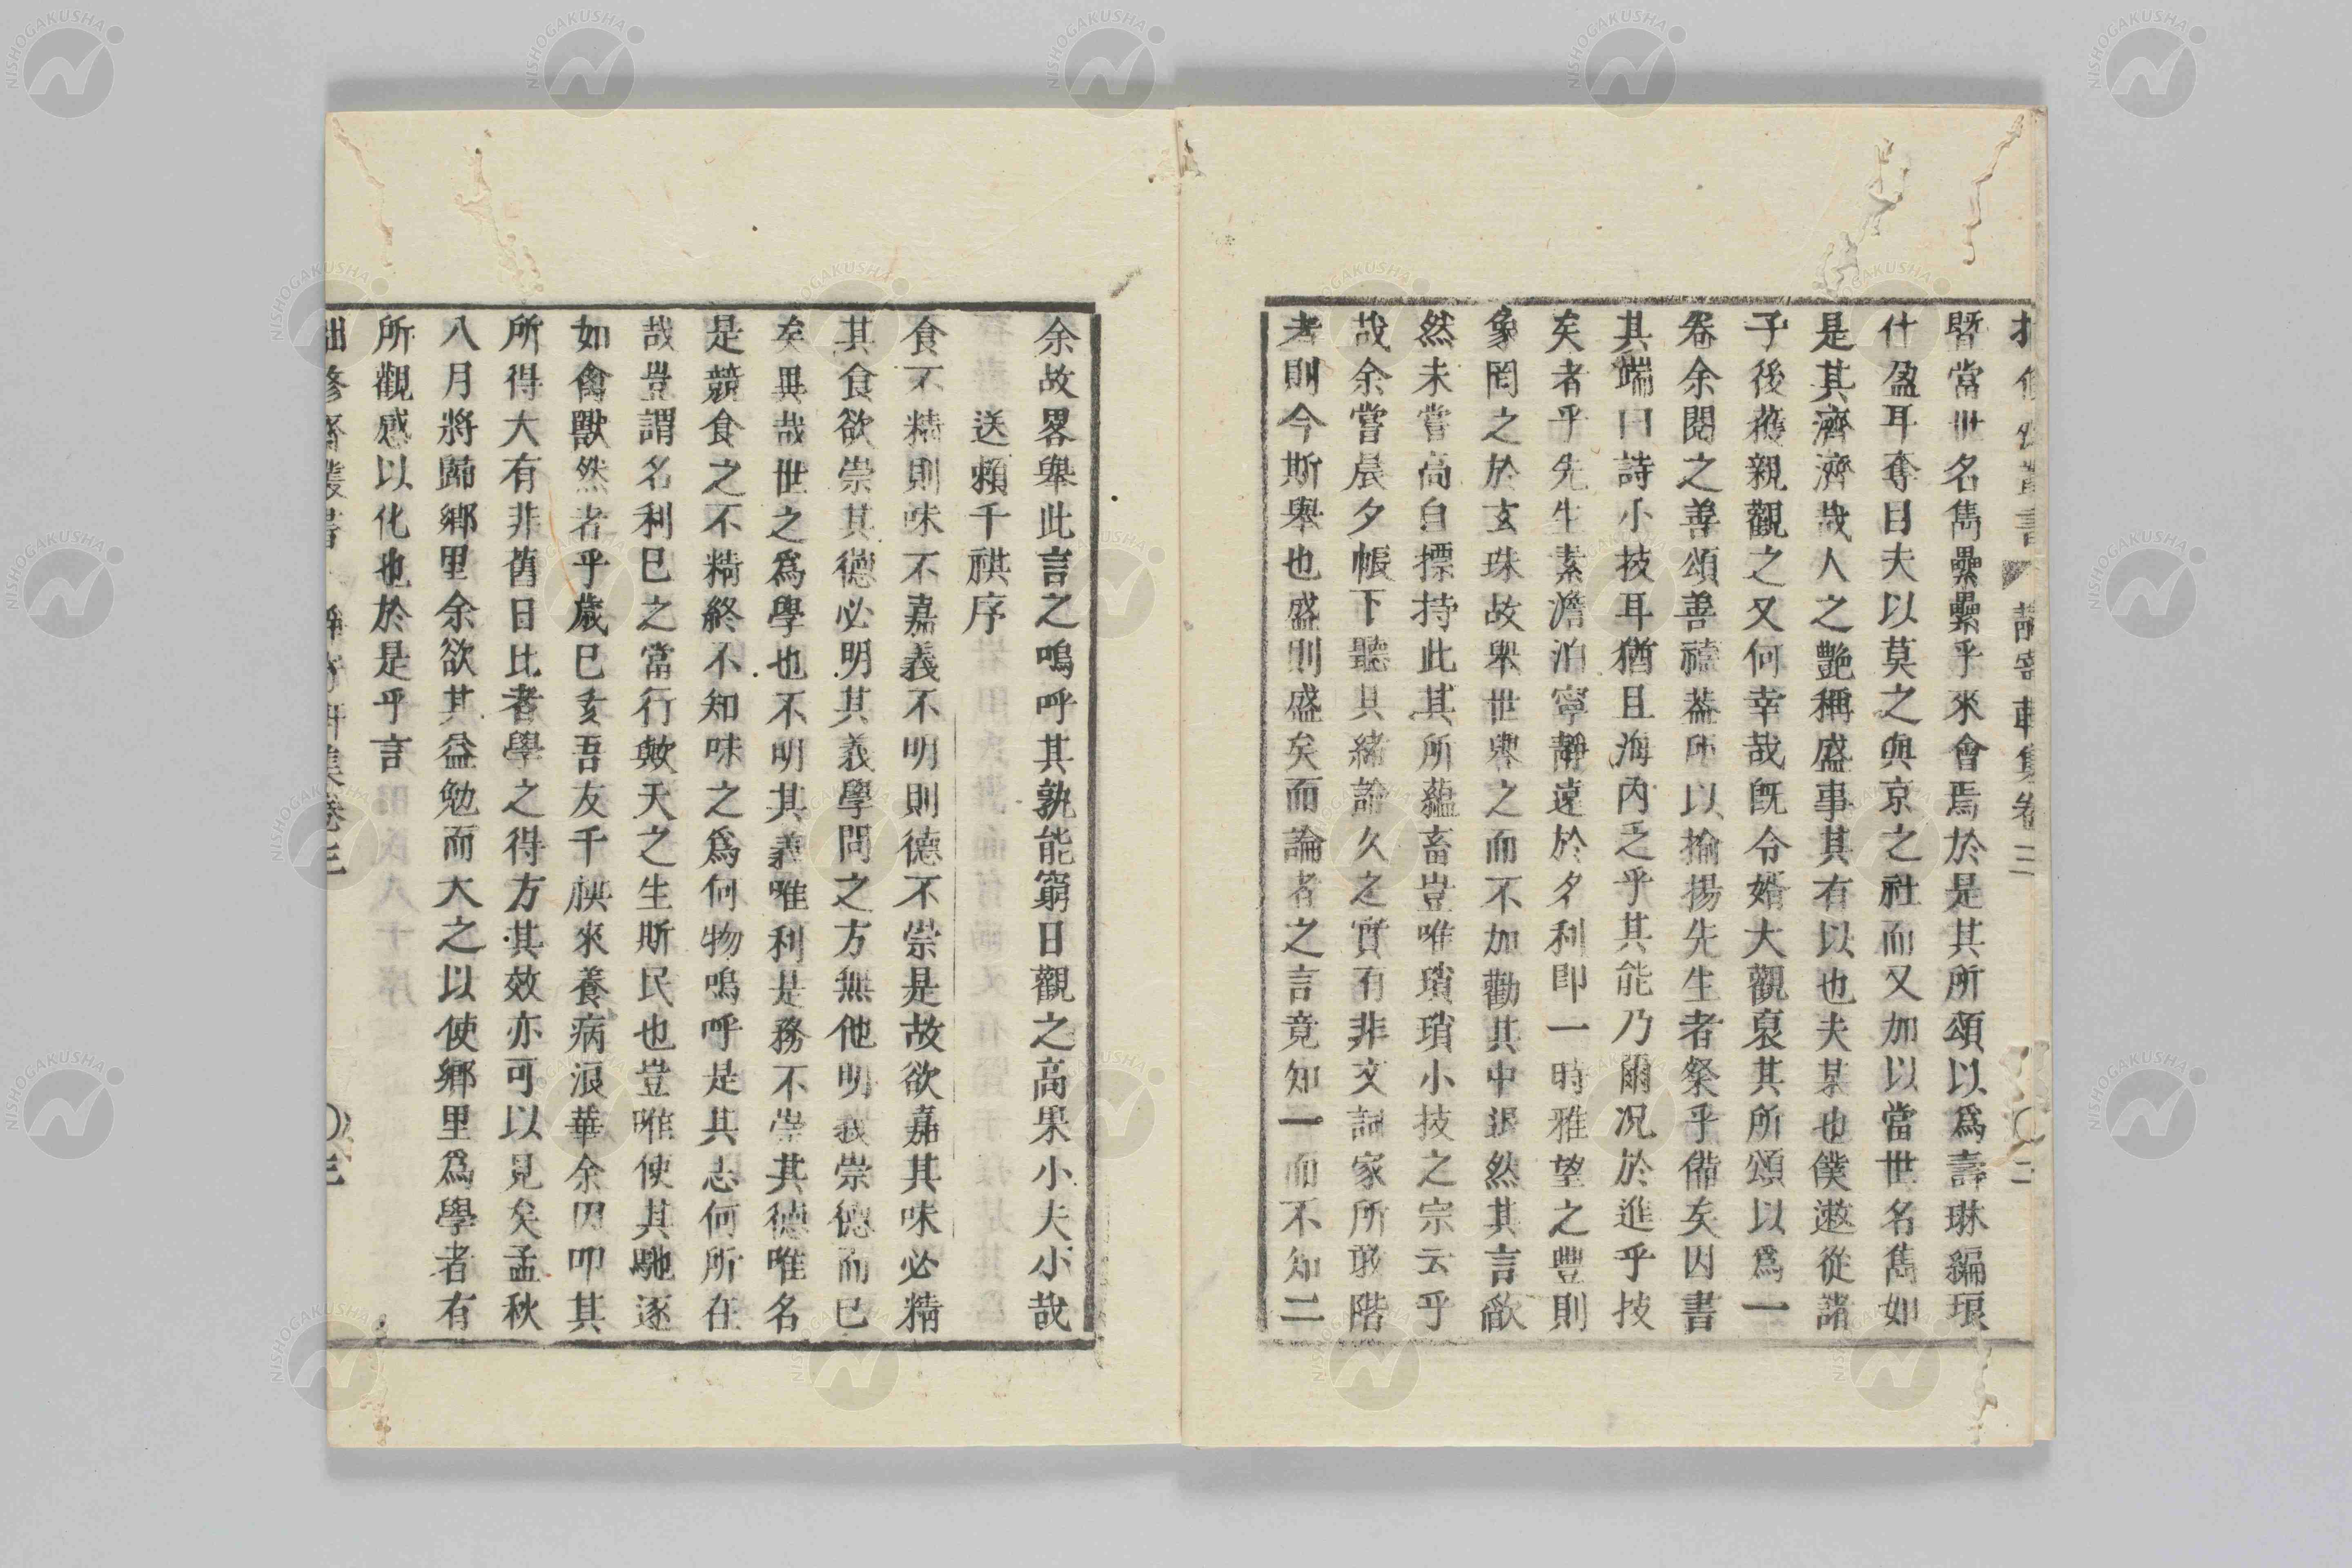 暨當世名雋纍纍乎來會焉於是其所頌以爲壽琳編琅
什盈耳奪目夫以莫之與京之社而又加以當世名雋如
是其濟濟哉人之艷稱盛事其有以也夫某也僕遬從諸
子後獲親觀之又何幸哉旣令婿大觀裒其所頌以爲一
卷余閱之善頌善禱葢所以揄揚先生者粲乎備矣因書
其端曰詩小技耳猶且海內乏乎其能乃爾况於進乎技
矣者乎先生素澹泊寧靜遠於名利卽一時雅望之豐則
象罔之於玄珠故擧世譽之而不加勸其中退然其言欿
然未嘗高自摽持此其所蘊畜豈唯瑣瑣小技之宗云乎
哉余嘗晨夕帳下聽其緖論久之實有非文詞家所敢階
者則今斯擧也盛則盛矣而論者之言竟知一而不知二
余故畧舉此言之嗚呼其孰能窮日觀之高果小夫小哉
送賴千祺序
食不精則味不嘉義不明則德不崇是故欲嘉其味必精
其食欲崇其德必明其義學問之方無他明義崇德而已
矣異哉世之爲學也不明其義唯利是務不崇其德唯名
是競食之不精終不知味之爲何物嗚呼是其志何所在
哉豈謂名利已之當行歟天之生斯民也豈唯使其馳逐
如禽獸然者乎歲已亥吾友千祺來養病浪華余因叩其
所得大有非舊日比者學之得方其效亦可以見矣孟秋
八月將歸鄕里余欲其益勉而大之以使鄕里爲學者有
所觀感以化也於是乎言